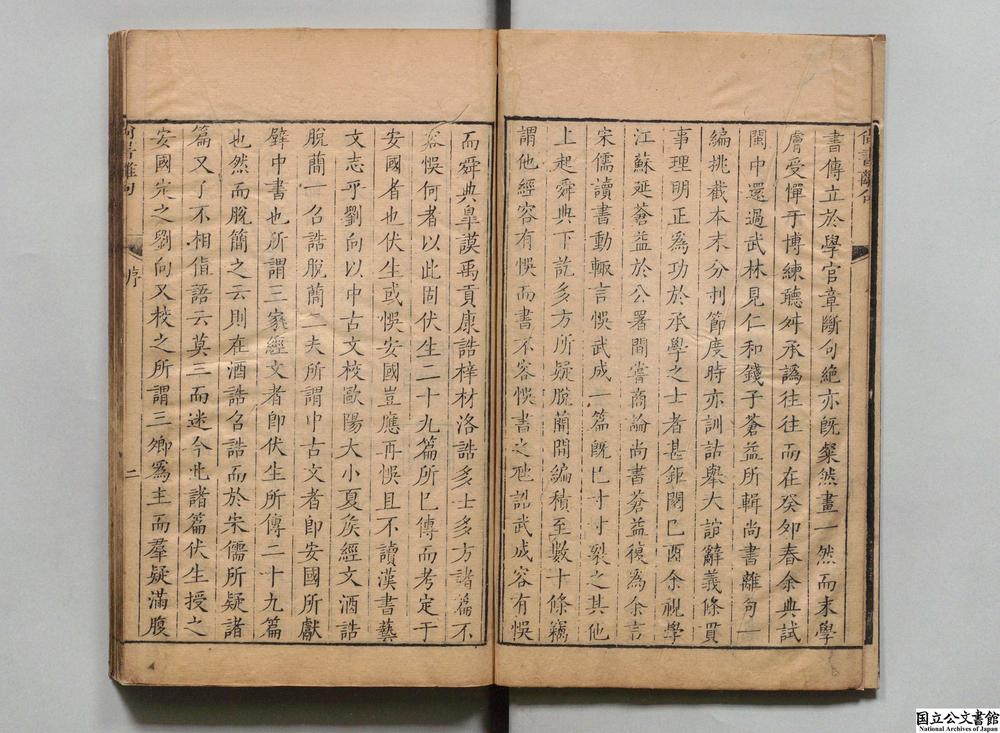 書傳立於學官章斷句絶亦旣粲然畫一然而末學
膚受憚于博練聽舛承譌往往而在癸卯春余典試
閩中還過武林見仁和錢子蒼益所輯尚書離句一
編挑截本末分刌節度時亦訓詁舉大誼辭義條貫
事理明正爲功於承學之士者甚鉅閱己酉余視學
江蘇延蒼益於公署間嘗商論尚書蒼益復爲余言
宋儒讀書動輒言悞武成一篇旣已寸寸裂之其他
上起舜典下訖多方所疑脫蘭開編積至數十條竊
謂他經容有悞而書不容悞書之他認武成容有悞
而舜典臯謨禹貢康誥梓材洛誥多士多方諸篇不
容悞何者以此固伏生二十九篇所已傳而考定于
安國者也伏生或悞安國豈應再悞且不讀漢書藝
文志乎劉向以中古文校歐陽大小夏矦經文酒誥
脫簡一召誥脫簡二夫所謂中古文者卽安國所獻
壁中書也所謂三家經文者卽伏生所傳二十九篇
也然而脫簡之云則在酒誥召誥而於宋儒所疑諸
篇又了不相值語云莫三而迷今此諸篇伏生授之
安國㝎之劉向又校之所謂三卿爲主而羣疑滿腹
尚書離句
序
二
国立公文書館
National Archives of Japan